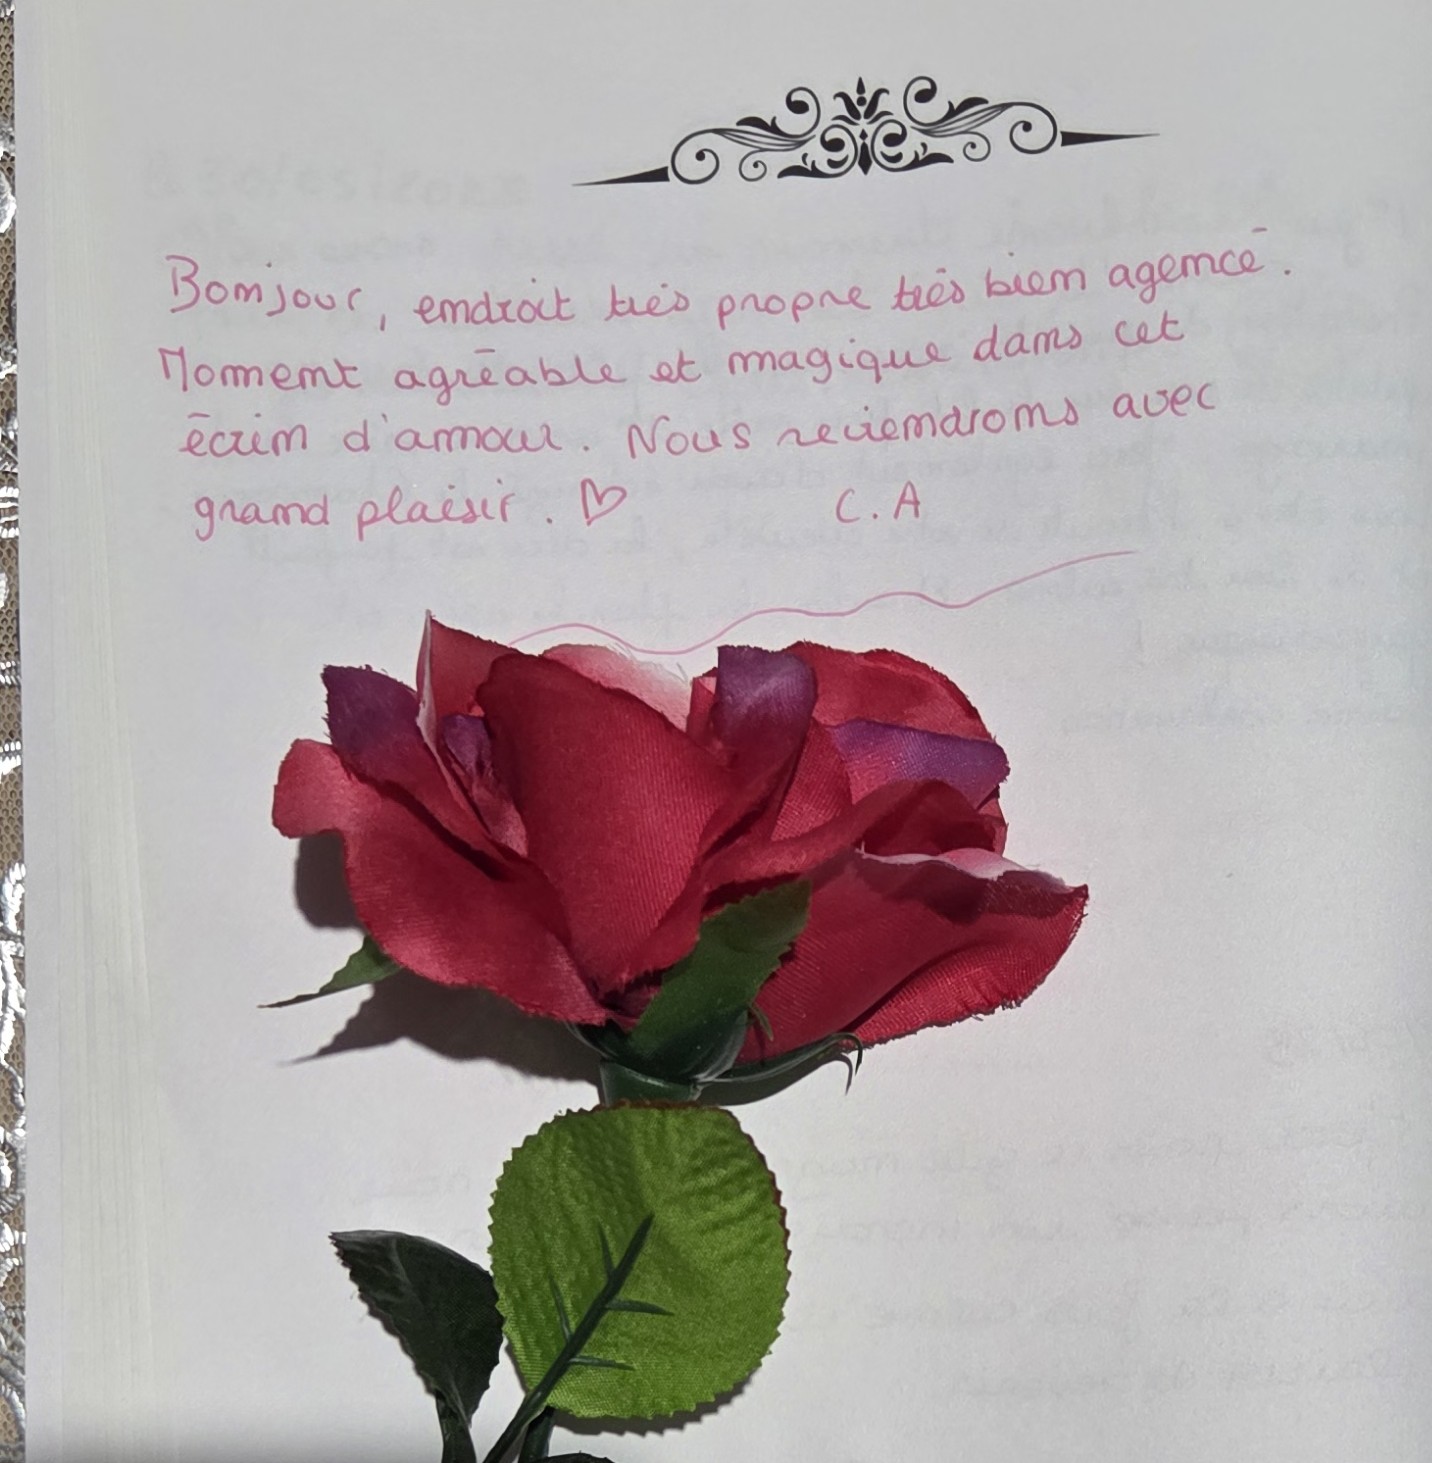 Bonjour, endroit très propre très bien agencé.
Moment agréable et magique dans cet
écrin d'amour. Nous reviendrons avec
grand plaisir. ♡ C. A